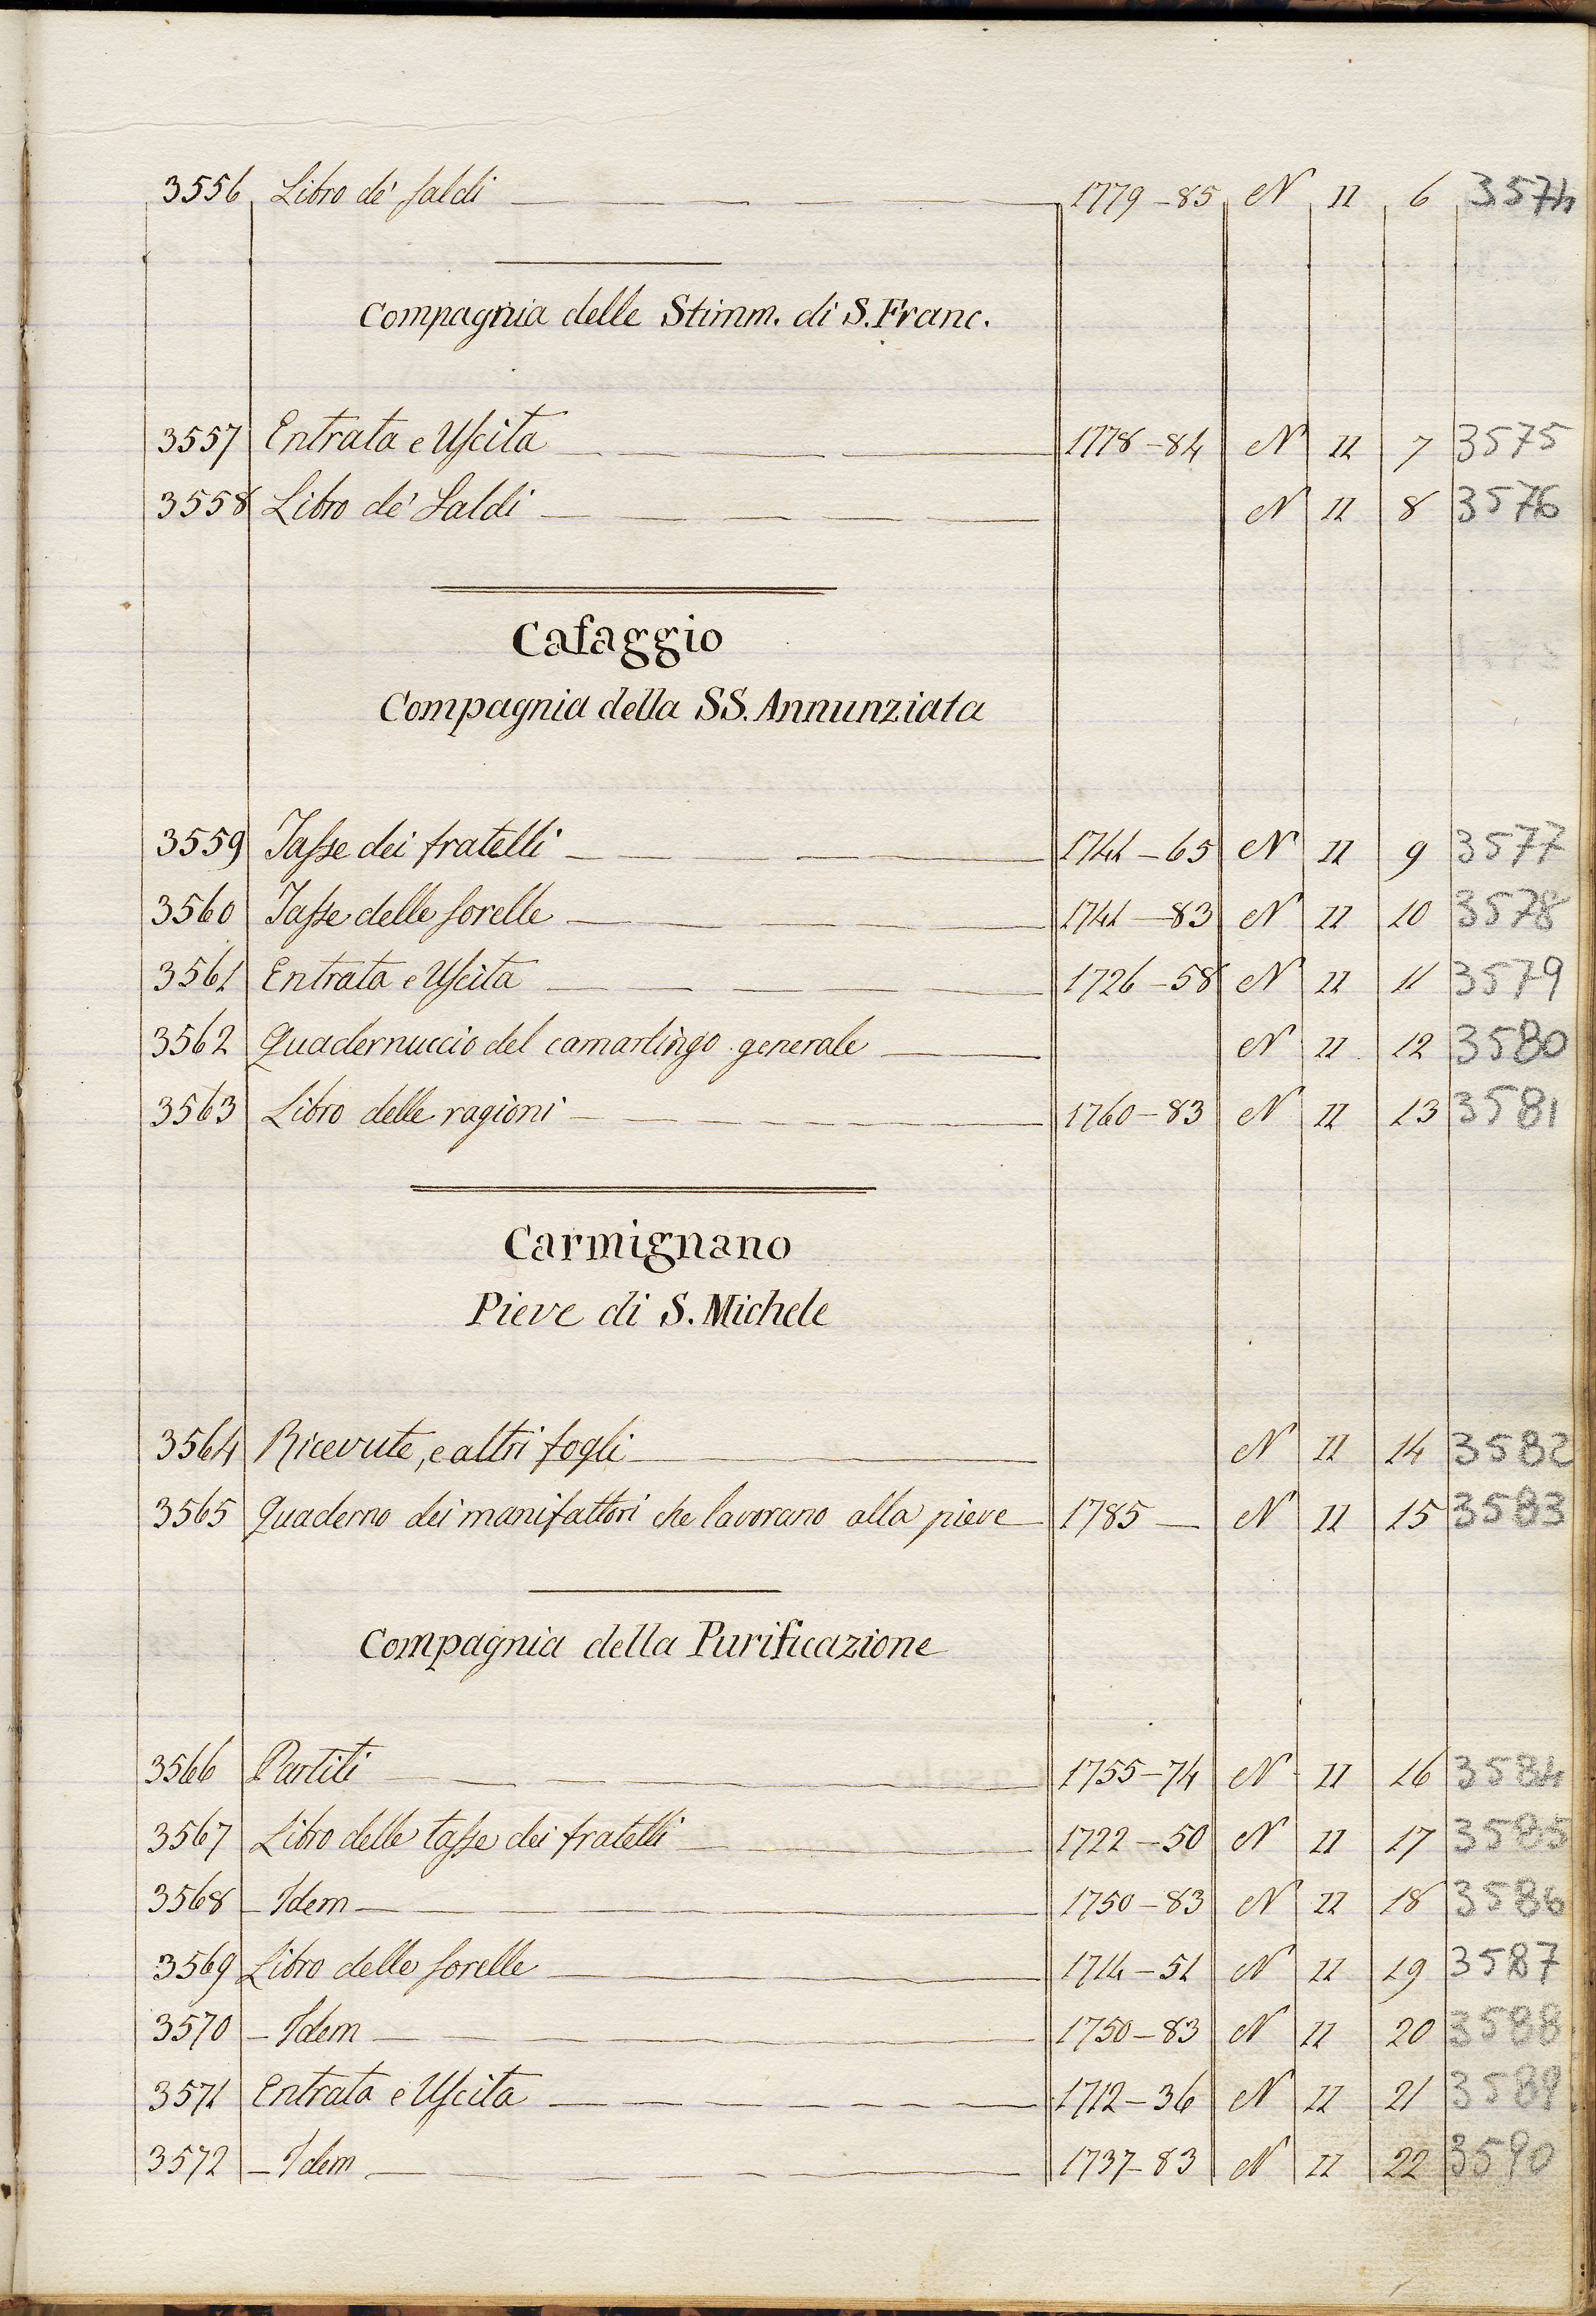 3556 Libro de' saldi 1779-85 N 11 6 3574
Compagnia delle Stimm. di S. Franc.
3557 Entrata e Uscita 1778-84 N 11 7 3575
3558 Libro de' Saldi N 11 8 3576
Cafaggio
Compagnia della SS. Annunziata
3559 Tasse dei fratelli 1741-65 N 11 9 3577
3560 Tasse delle sorelle 1741-83 N 11 10 3578
3561 Entrata e Uscita 1726-58 N 11 11 3579
3562 Quadernuccio del camarlingo generale N 11 12 3580
3563 Libro delle ragioni 1760-83 N 11 13 3581
Carmignano
Pieve di S. Michele
3564 Ricevute, e altri fogli N 11 14 3582
3565 Quaderno dei manifattori che lavorano alla pieve 1785 N 11 15 3583
Compagnia della Purificazione
3566 Partiti 1755-74 N 11 16 3584
3567 Libro delle tasse dei fratelli 1722-50 N 11 17 3585
3568 Idem 1750-83 N 11 18 3586
3569 Libro delle sorelle 1714-51 N 11 19 3587
3570 Idem 1750-83 N 11 20 3588
3571 Entrata e Uscita 1712-36 N 11 21 3589
3572 Idem 1737-83 N 11 22 3590